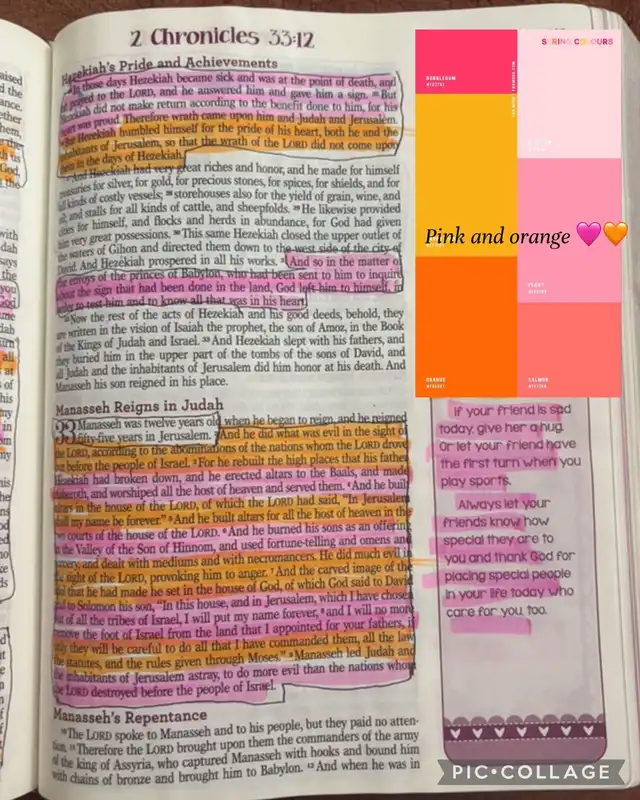 2 Chronicles 33:12
Hezekiah's Pride and Achievements
In those days Hezekiah became sick and was at the point of death, and
prayed to the LORD, and he answered him and gave him a sign. But
Hezekiah did not make return according to the benefit done to him, for his
heart was proud. Therefore wrath came upon him and Judah and Jerusalem.
But Hezekiah humbled himself for the pride of his heart, both he and the
inhabitants of Jerusalem, so that the wrath of the LORD did not come upon
them in the days of Hezekiah.
And Hezekiah had very great riches and honor, and he made for himself
treasuries for silver, for gold, for precious stones, for spices, for shields, and for
all kinds of costly vessels; storehouses also for the yield of grain, wine, and
oil; and stalls for all kinds of cattle, and sheepfolds. He likewise provided
cities for himself, and flocks and herds in abundance, for God had given
him very great possessions. This same Hezekiah closed the upper outlet of
the waters of Gihon and directed them down to the west side of the city of
David. And Hezekiah prospered in all his works. And so in the matter of
the envoys of the princes of Babylon, who had been sent to him to inquire
about the sign that had been done in the land, God left him to himself, in
order to test him and to know all that was in his heart.
Now the rest of the acts of Hezekiah and his good deeds, behold, they
are written in the vision of Isaiah the prophet, the son of Amoz, in the Book
of the Kings of Judah and Israel. And Hezekiah slept with his fathers, and
they buried him in the upper part of the tombs of the sons of David, and
all Judah and the inhabitants of Jerusalem did him honor at his death. And
Manasseh his son reigned in his place.
Manasseh Reigns in Judah
33 Manasseh was twelve years old when he began to reign, and he reigned
fifty-five years in Jerusalem. And he did what was evil in the sight of
the LORD, according to the abominations of the nations whom the LORD drove
out before the people of Israel. For he rebuilt the high places that his father
Hezekiah had broken down, and he erected altars to the Baals, and made
Asheroth, and worshiped all the host of heaven and served them. And he built
altars in the house of the LORD, of which the LORD had said, "In Jerusalem
shall my name be forever." And he built altars for all the host of heaven in the
two courts of the house of the LORD. And he burned his sons as an offering
in the Valley of the Son of Hinnom, and used fortune-telling and omens and
sorcery, and dealt with mediums and with necromancers. He did much evil in
the sight of the LORD, provoking him to anger. And the carved image of the
idol that he had made he set in the house of God, of which God said to David
and to Solomon his son, "In this house, and in Jerusalem, which I have chosen
out of all the tribes of Israel, I will put my name forever, and I will no more
remove the foot of Israel from the land that I appointed for your fathers, if
only they will be careful to do all that I have commanded them, all the law,
the statutes, and the rules given through Moses." Manasseh led Judah and
the inhabitants of Jerusalem astray, to do more evil than the nations whom
the LORD destroyed before the people of Israel.
Manasseh's Repentance
The LORD spoke to Manasseh and to his people, but they paid no atten-
tion. Therefore the LORD brought upon them the commanders of the army
of the king of Assyria, who captured Manasseh with hooks and bound him
with chains of bronze and brought him to Babylon. And when he was in
SPRING COLOURS
BUBBLEGUM
Pink and orange 🩷🧡
ORANGE
SALMON
If your friend is sad
today, give her a hug.
Or let your friend have
the first turn when you
play sports.
Always let your
friends know how
special they are to
you and thank God for
placing special people
in your life today who
care for you, too.
PIC•COLLAGE